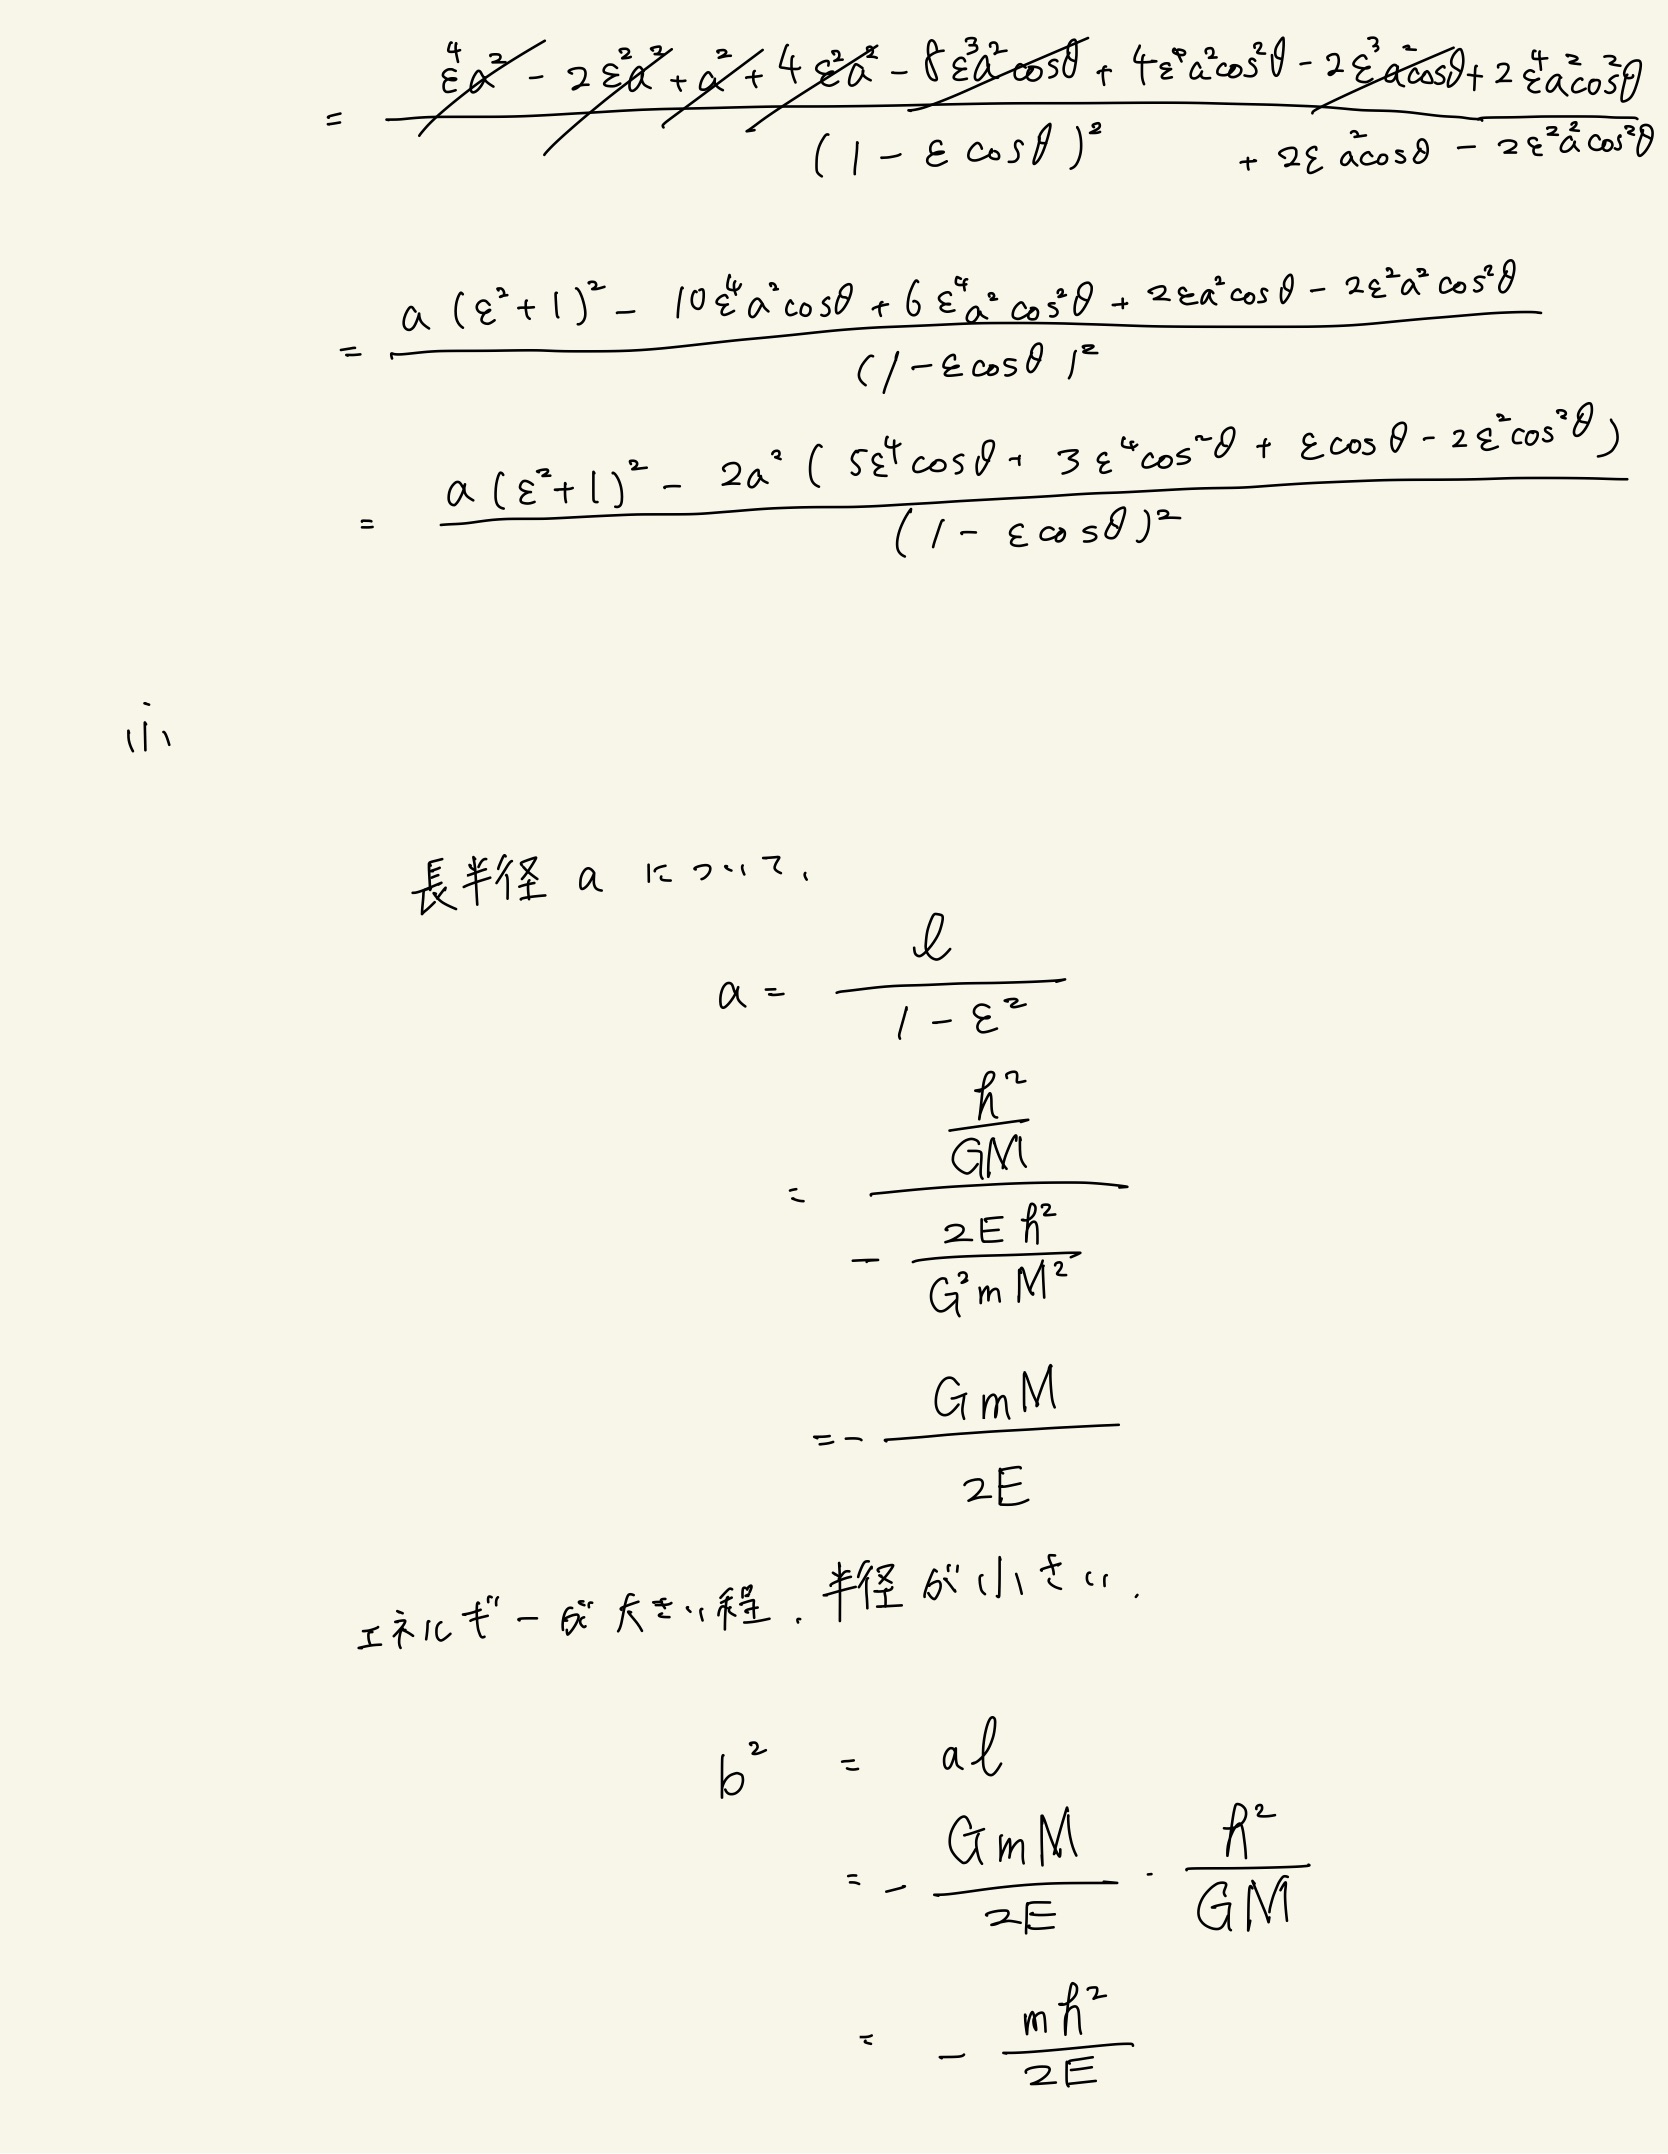 = ε⁴a² - 2ε²a² + a² + 4ε²a² - 8ε³a²cosθ + 4ε⁴a²cos²θ - 2ε³a²cosθ + 2ε⁴a²cos²θ
(1 - εcosθ)² + 2εa²cosθ - 2ε²a²cos²θ
= a(ε²+1)² - 10ε⁴a²cosθ + 6ε⁴a²cos²θ + 2εa²cosθ - 2ε²a²cos²θ
(1 - εcosθ)²
= a(ε²+1)² - 2a²(5ε⁴cosθ + 3ε⁴cos²θ + εcosθ - 2ε²cos²θ)
(1 - εcosθ)²
iii
長半径 a について、
a = ℓ / (1 - ε²)
= (h²/GM) / (- 2Eh²/G²mM²)
= - GmM / 2E
エネルギーが大きい程、半径が小さい.
b² = aℓ
= - GmM/2E · h²/GM
= - mh²/2E